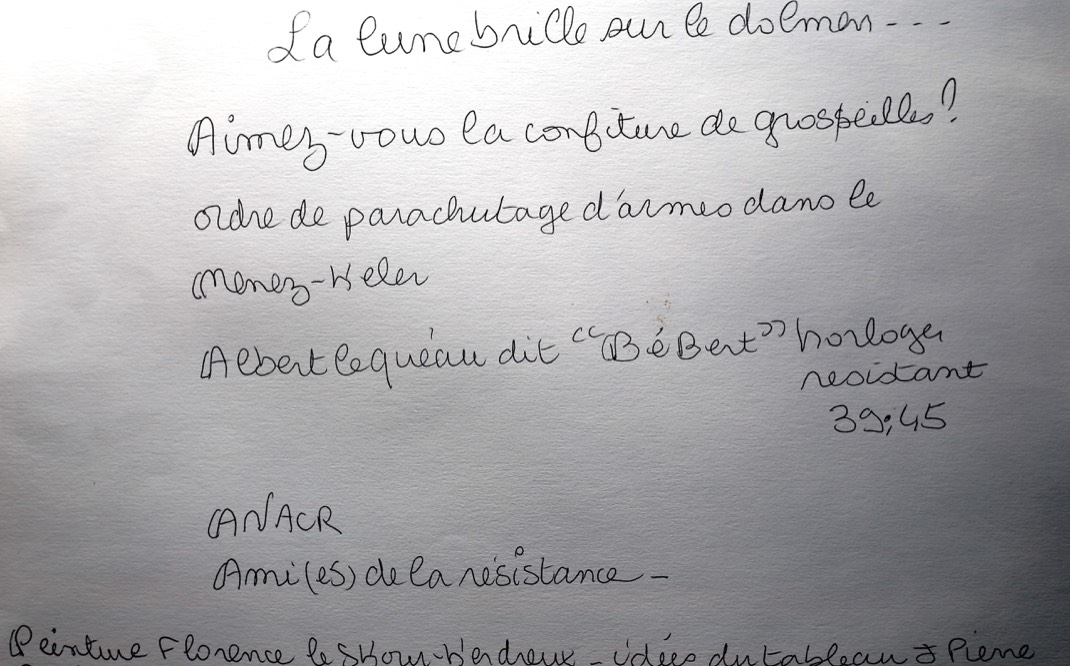 La lune brille sur le dolmen - - -
Aimez-vous la confiture de grospeilles?
ordre de parachutage d'armes dans le
Menez-Heler
Albert le quéau dit "BéBert" horloger
resistant
39;45
ANACR
Ami(es) de la résistance -
Peinture Florence le - idées du tableau J Pierre